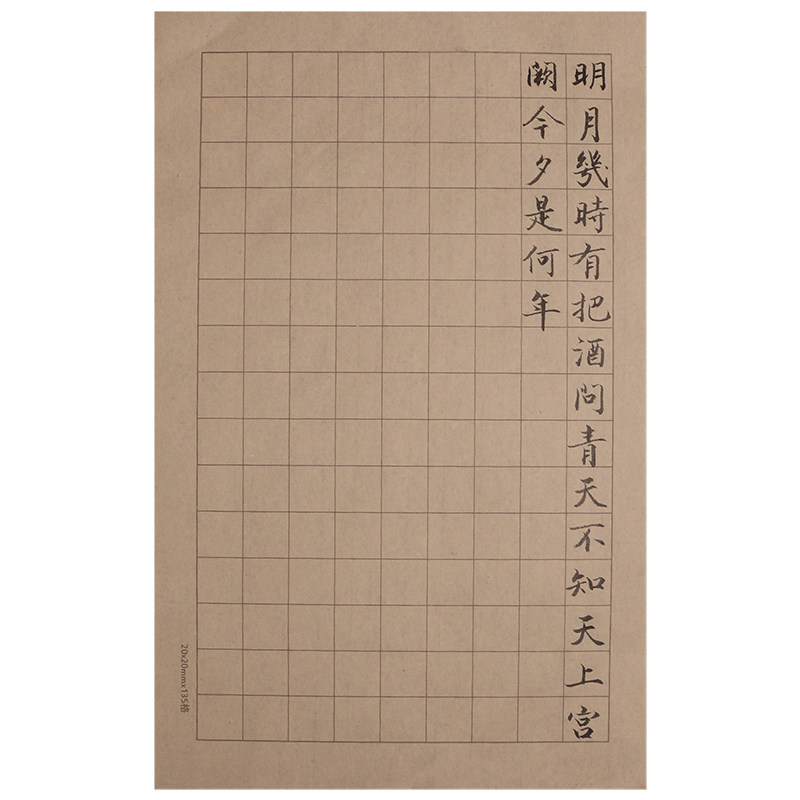 明月幾時有把酒問青天不知天上宮
闕今夕是何年
20x20mmx135格